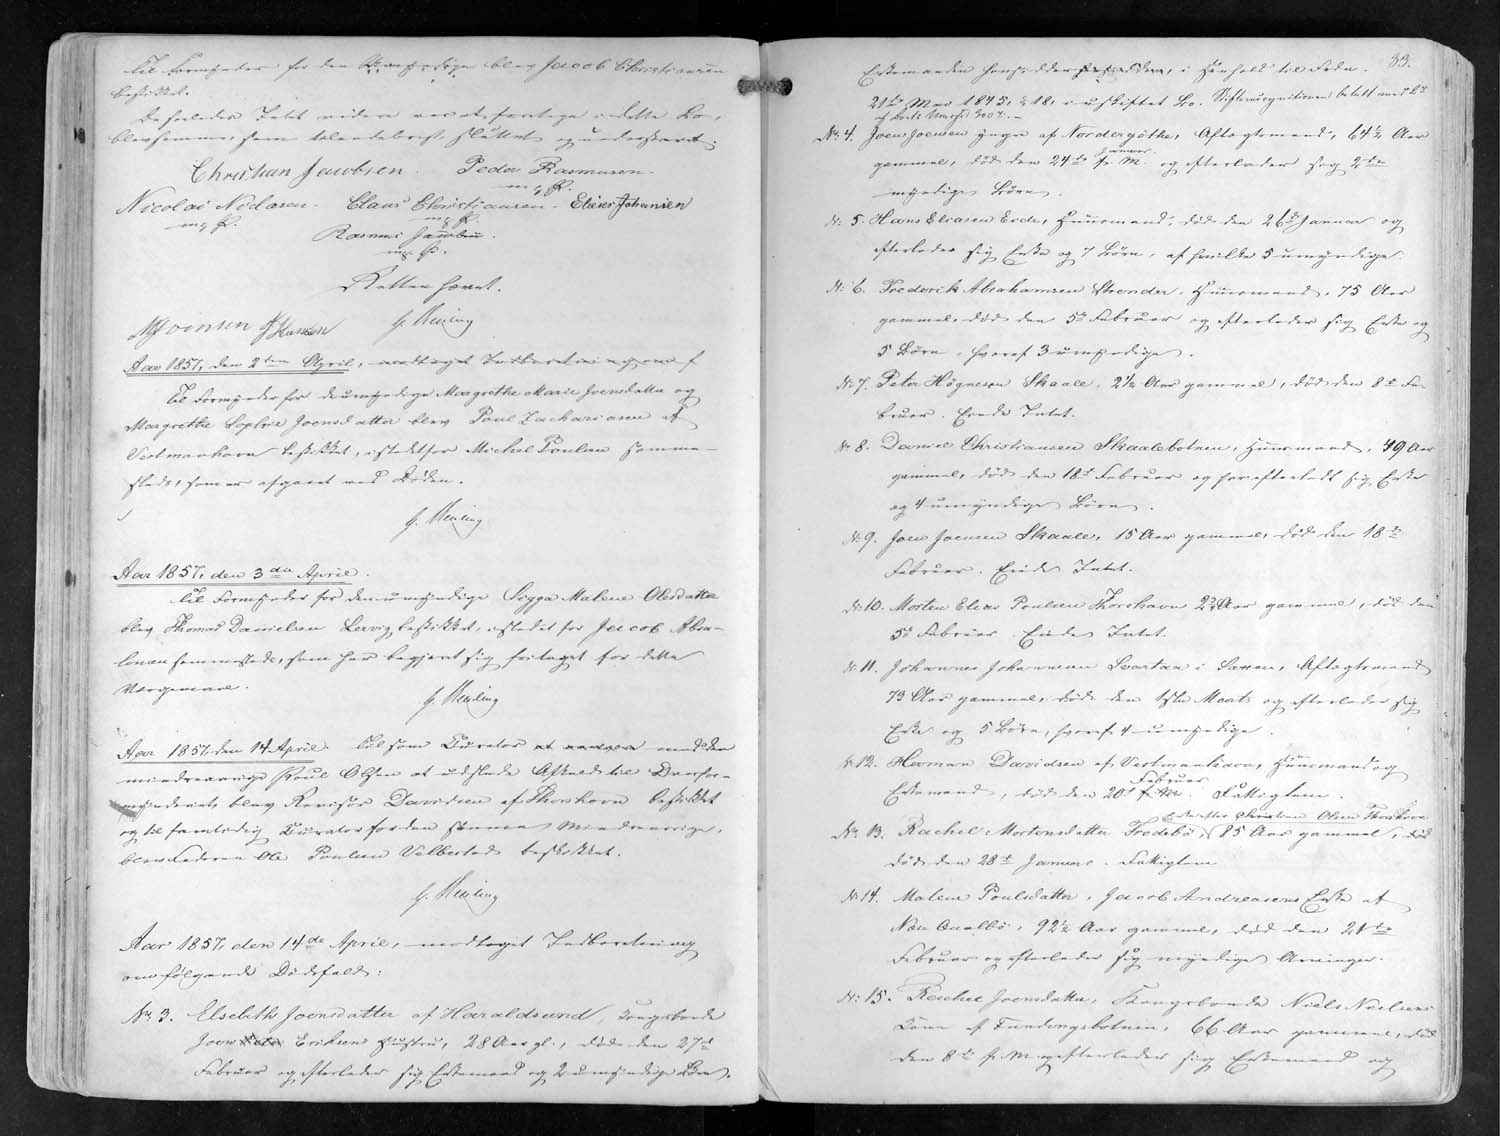 til Formynder for den Umyndige blev Jacob Christiansen
beskikket.
Da forløbet Intet videre var at foretage i dette Bo,
blev samme, som lovlebelrist sluttet og underskrevet.
Christian Jacobsen. Peder Rasmusen
m. f. P.
Nicolai Nidosen Claus Christiansen Elieser Johansen
m. f. P. m. f. P.
Rasmus Jacobsen.
m. f. P.
Retten hævet.
MJoensen JHansen G. Meuling
Aar 1857, den 2den April, modtaget Indberetningen f
Til Formynder for de umyndige Margrethe Marie Joensdatter og
Margrethe Sophie Joensdatter blev Poul Zachariasen af
Vestmanhavn beskikket, istedetfor Michel Poulsen samme-
steds, som er afgaaet ved Døden.
G. Meuling
Aar 1857, den 3die April.
Til Formynder for den umyndige Sigga Malene Olesdatter
blev Thomas Danielsen Lervig beskikket, istedet for Jacob Absa-
lonsen sammesteds, som har begjert sig fritaget for dette
Værgemaal.
G. Meuling
Aar 1857 den 14 April. Til som Curator at med den
mindreaarige Poul Olsen at udstede Afkald til Overfor-
mynderiet, blev Revisor Davidsen af Thorshavn beskikket
og til samtidig Curator for den samme Mindreaarige,
blev Faderen Ole Poulsen Velbestad beskikket.
G. Meuling
Aar 1857, den 14de April, modtaget Indberetning
om følgende Dødsfald:
No. 3. Elsebeth Joensdatter af Haraldsund, Kongsbonde
Joen Eriksens Hustru, 28 Aar gl., døde den 27de
Februar og efterlader sig Enkemand og 2 umyndige Børn.
33.
Enkemanden hensidder, i Henhold til Fdn.
21de Mai 1845, § 18, i uskiftet Bo. Stifterecognitionen betalt med
No. 4. Joen Joensen yngre af Nordergøthe, Aftægtsmand, 64½ Aar
gammel, død den 24de Januar og efterlader sig 2de
myndige Børn.
No. 5. Hans Eliasen Eide, Huusmand, død den 26de Januar og
efterlader sig Enke og 7 Børn, af hvilke 5 umyndige.
No. 6. Frederik Abrahamsen Strender, Huusmand, 75 Aar
gammel, død den 5te Februar og efterlader sig Enke og
5 Børn, hvoraf 3 umyndige.
No. 7. Peter Høgnesen Skaale, 2½ Aar gammel, død den 8de Fe-
bruar. Eiede Intet.
No. 8. Daniel Christiansen Skaalebotnen, Huusmand, 49 Aar
gammel, død den 18de Februar og har efterladt sig Enke
og 4 umyndige Børn.
No. 9. Joen Joensen Skaale, 15 Aar gammel, død den 18de
Februar. Eiede Intet.
No. 10. Morten Elias Poulsen Thorshavn 2¾ Aar gammel, død den
5te Februar. Eiede Intet.
No. 11. Johannes Johannesen Svartaa i Saxen, Aftægtsmand
73 Aar gammel, døde den 1ste Marts og efterlader sig
Enke og 5 Børn, hvoraf 4 umyndige.
No. 12. Herman Davidsen af Vestmanhavn, Huusmand og
Enkemand, død den 20de Februar. Fattiglem.
No. 13. Rachel Mortensdatter Fredebø, Enke efter Christian Olsen Thorshavn 85 Aar gammel, død
døde den 28de Januar. Fattiglem
No. 14. Malene Poulsdatter, Jacob Andreasens Enke af
Næs Qvalbø, 92½ Aar gammel, død den 21de
Februar og efterlader sig myndige Arvinger.
No. 15. Rachel Joensdatter, Kongsbonde Niels Nielsens
Kone af Fundingsbotnen, 66 Aar gammel, død
den 8de f. M. og efterlader sig Enkemand og